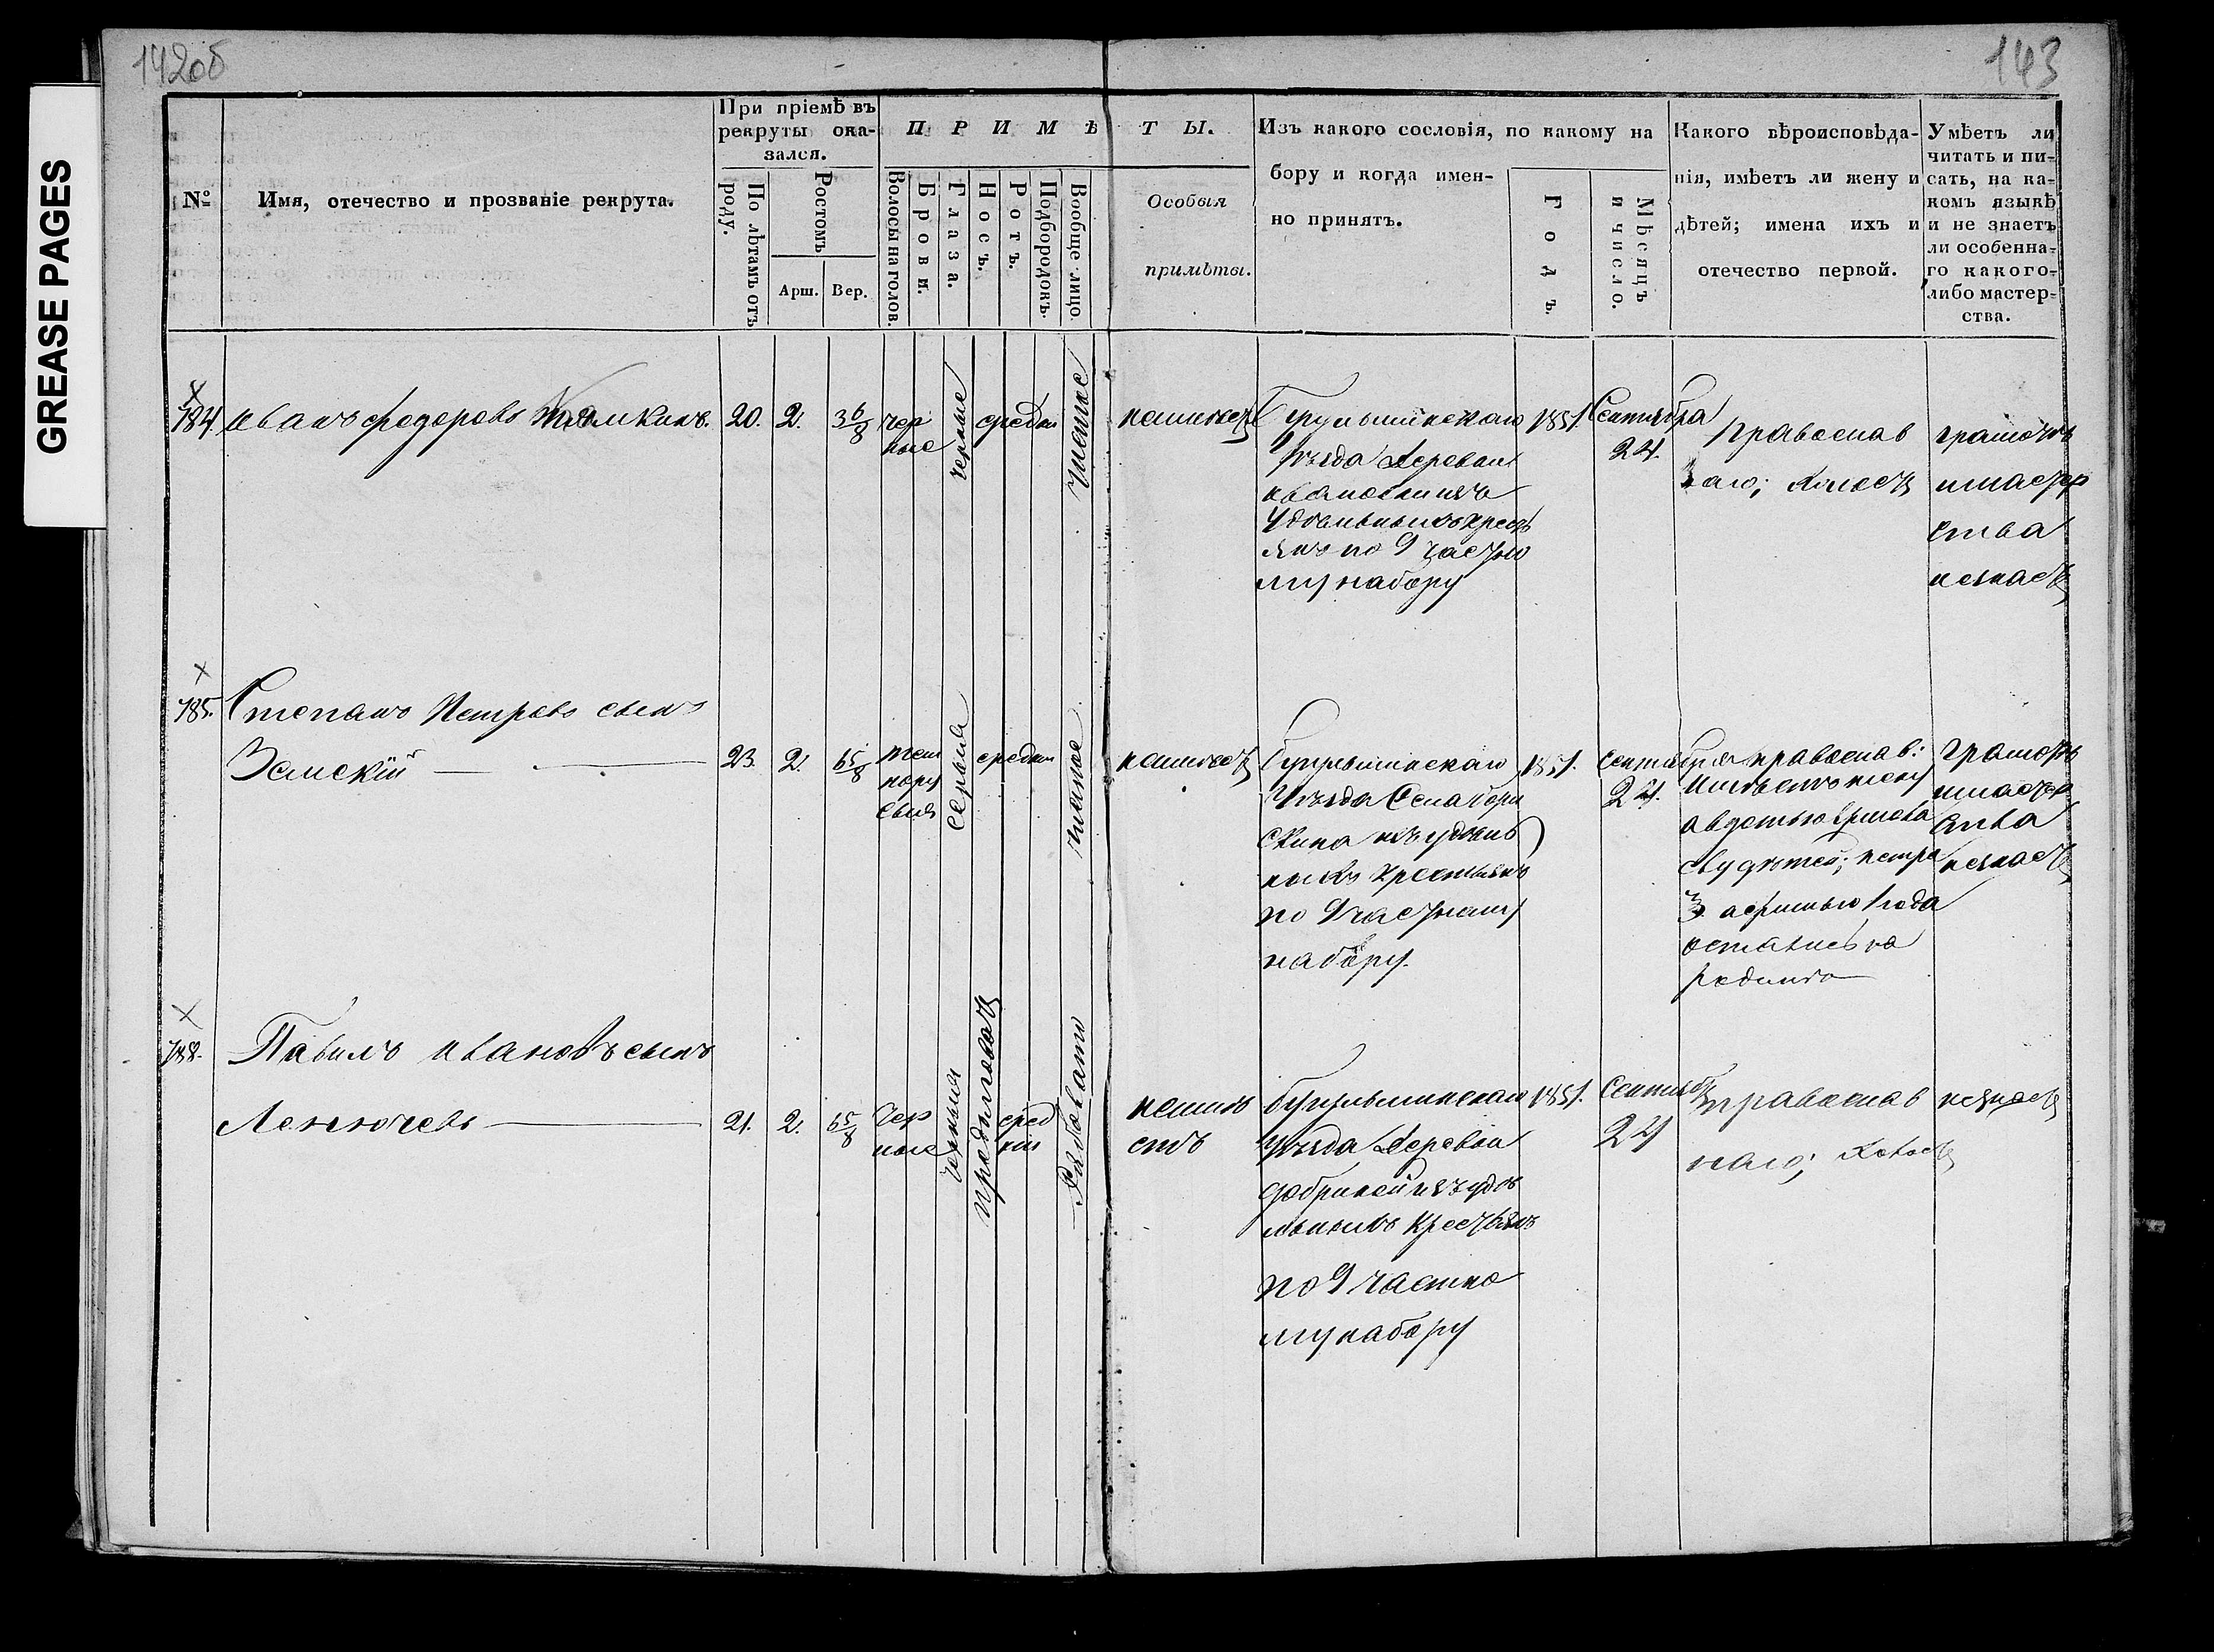 GREASE PAGES
142об
143
№
Имя, отечество и прозваніе рекрута.
При пріемѣ въ
рекруты ока-
зался.
По лѣтамъ отъ
роду.
Ростомъ
Арш.
Вер.
ПРИМѢТЫ.
Волосы на голов.
Брови.
Глаза.
Носъ.
Ротъ.
Подбородокъ.
Вообще лицо.
Особыя
примѣты.
Изъ какого сословія, по какому на
бору и когда имен-
но принятъ.
Годъ.
Мѣсяцъ
и число.
Какого вѣроисповѣда-
нія, имѣетъ ли жену и
дѣтей; имена ихъ и
отечество первой.
Умѣетъ ли
читать и пи-
сать, на ка-
комъ языкѣ
и не знаетъ
ли особенна-
го какого-
либо мастер-
ства.
184
иванъ федоровъ
20.
2.
3 6/8
чер
ные
черные
средни
чистое
неимеет
уезда деревни
удельныхъ крест
янъ по 9 частно
му набору
1851.
Сентября
24.
православ
наго; холост
грамоте
имастер
ства
незнает
185.
Степанъ Петровъ сынъ
Земскій
23.
2.
6 5/8
темно
русы
серыя
средни
чистое
неимеет
Бугульминскаго
уезда Села
изъ удель
ныхъ крестьянъ
по 9 частному
набору.
1851.
Сентября
24.
православ:
Имеетъ жену
авдотью
детей; петра
3 1 года
остались на
родине
грамоте
имастер
ства
незнает
188.
Павилъ ивановъ сынъ
Ленючевъ
21.
2.
6 5/8
Чер
ные
черныя
продолговат
сред
ній
Рябовато
неиме
етъ
бугульминскаго
уезда деревни
изъ удѣ
льныхъ крестьянъ
по 9 частно
му набору
1851.
Сентяб
24
православ
наго; холост
незнает